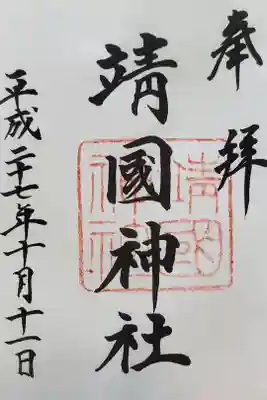 奉拝
靖國神社
平成二十七年十月十一日
靖國神社